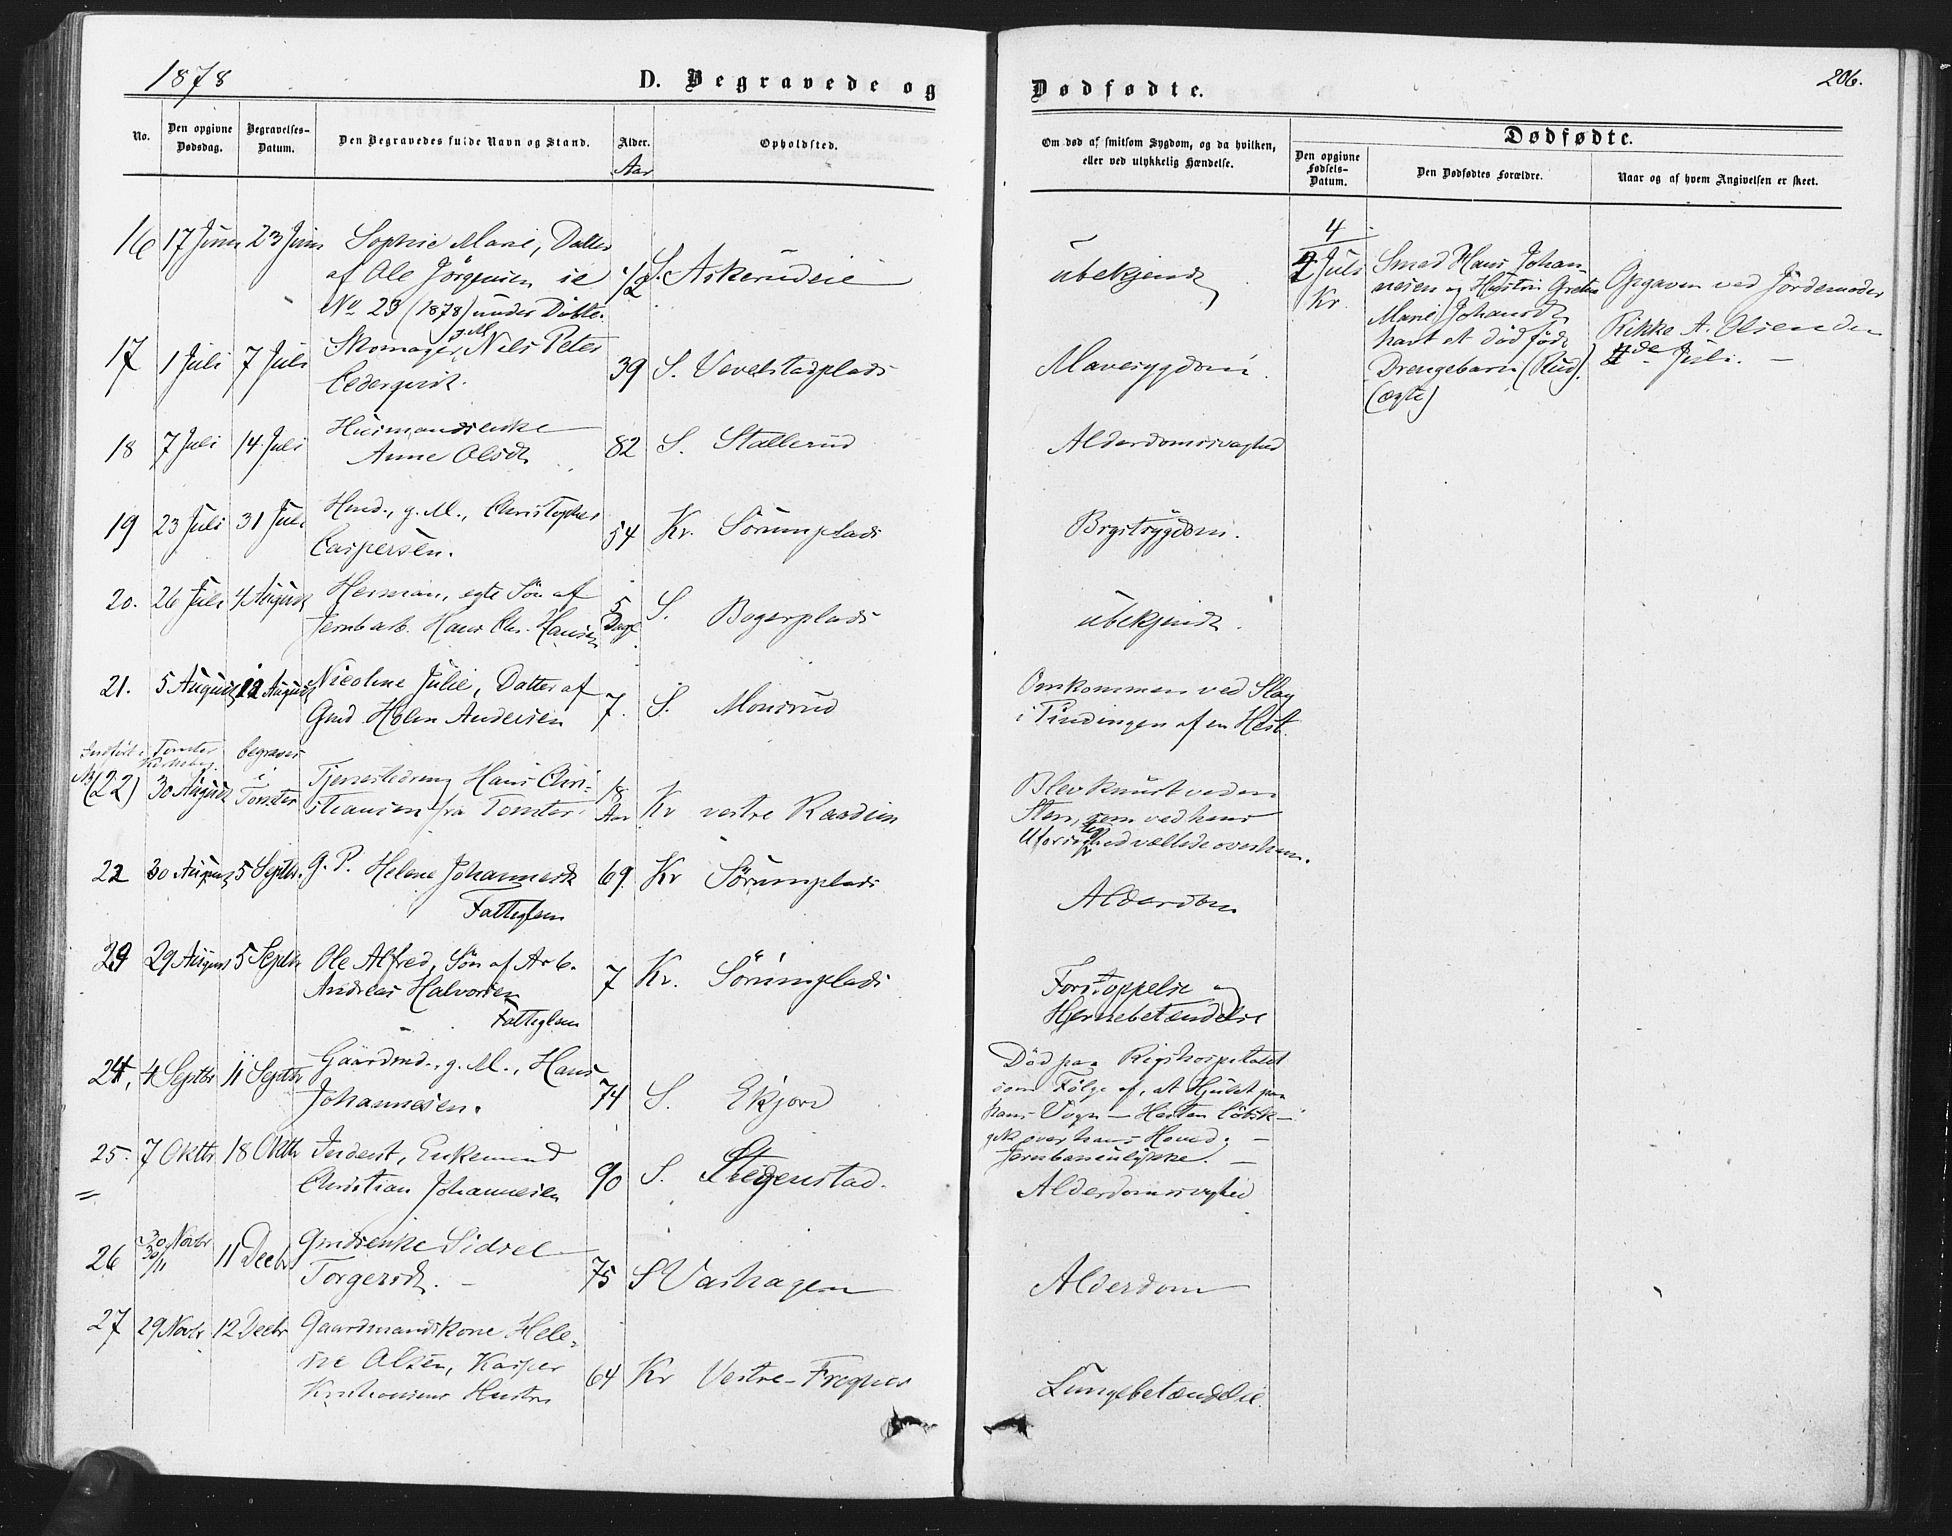 1878
D. Begravede og
Dødfødte.
206.
No.
Den opgivne Dødsdag.
Begravelses-Datum.
Den Begravedes fulde Navn og Stand.
Alder.
Aar
Opholdssted.
Om død af smitsom Sygdom, og da hvilken,
eller ved ulykkelig Hændelse.
Dødfødte.
Den opgivne Fødsels-Datum.
Den Dødfødtes Forældre.
Naar og af hvem Angivelsen er skeet.
16 17 Juni 23 Juni Sophie Marie, Datter
af Ole Jørgensen se 1/2 S. Askerudeie ubekjendt
No 23 (1878) under Døbte.
4 Juli Kr.
Smed Hans Johan-
nesen og Hustru Grethe
Marie Johansdt
havt et død født
Drengebarn (Rud).
(ægte)
Opgaven ved Jordemoder
Rikke A. Olsen den
4de Juli. —
17 1 Juli 7 Juli Skomager, g. M. Nils Peter
Cederqvist. 39 S. Vevelstadplads Mavesygdom.
18 7 Juli 14 Juli Husmandsenke
Anne Olsdt 82 S. Stallerud Alderdomssvaghed
19 23 Juli 31 Juli Hmd., g. M., Christopher
Caspersen. 54 Kr. Sörumplads Brystsygdom.
20. 26 Juli 4 August Herman, egte Søn af
Jernb arb. Hans Chr. Hansen 5 Dage S. Bogerplads ubekjendt.
21. 5 August 12 August Nicoline Julie, Datter af
Gmd Helen Andersen 7. S. Monsrud
Omkommen ved Slag
i Tindingen af en Hest.
Indført i Tomter Kirkebog. begravet
No (22) 30 August i Tomter Tjenestedreng Hans Chri-
stiansen fra Tomter 18 Aar Kr vestre Raaden
Blev knust ved en
Sten, som ved hans
Uforsigtighed væltede over ham.
22 30 August 5 Septbr. G. P. Helene Johannesdt 69 Kr Sørumplads Alderdom
Fattiglem
23 29 August 5 Septbr Ole Alfred, Søn af Arb.
Andreas Halvorsen 7 Kr. Sørumplads
Fattiglem
Forstoppelse og
Hjernebetændelse
24, 4 Septbr 11 Septbr Gaardmd., g. M., Hans
Johannesen. 74 S. Ekjord
Død paa Rigshospitalet
som Følge af, at Hjulet paa
hans Vogn — Hesten løbsk —
gik over hans Hoved. —
Jernbaneulykke. —
25. 7 Oktbr 18 Oktbr Inderst, Enkemand
Christian Johannesen 90 S. Stegenstad. Alderdomssvaghed
26 30 Novbr 30/11 11 Decbr Gmdsenke Sidsel
Torgersdt. — 75 S Vashagen Alderdom
27 29 Novbr 12 Decbr Gaardmandskone Hele-
ne Olsen, Kasper
Kristiansens Hustru 64 Kr Vestre-Frogner Lungebetændelse.